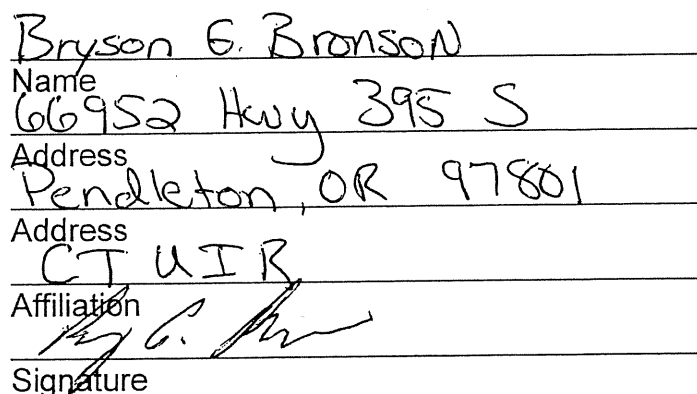 Bryson G. Bronson
Name
66952 Hwy 395 S
Address
Pendleton, OR 97801
Address
CTUIR
Affiliation
Signature